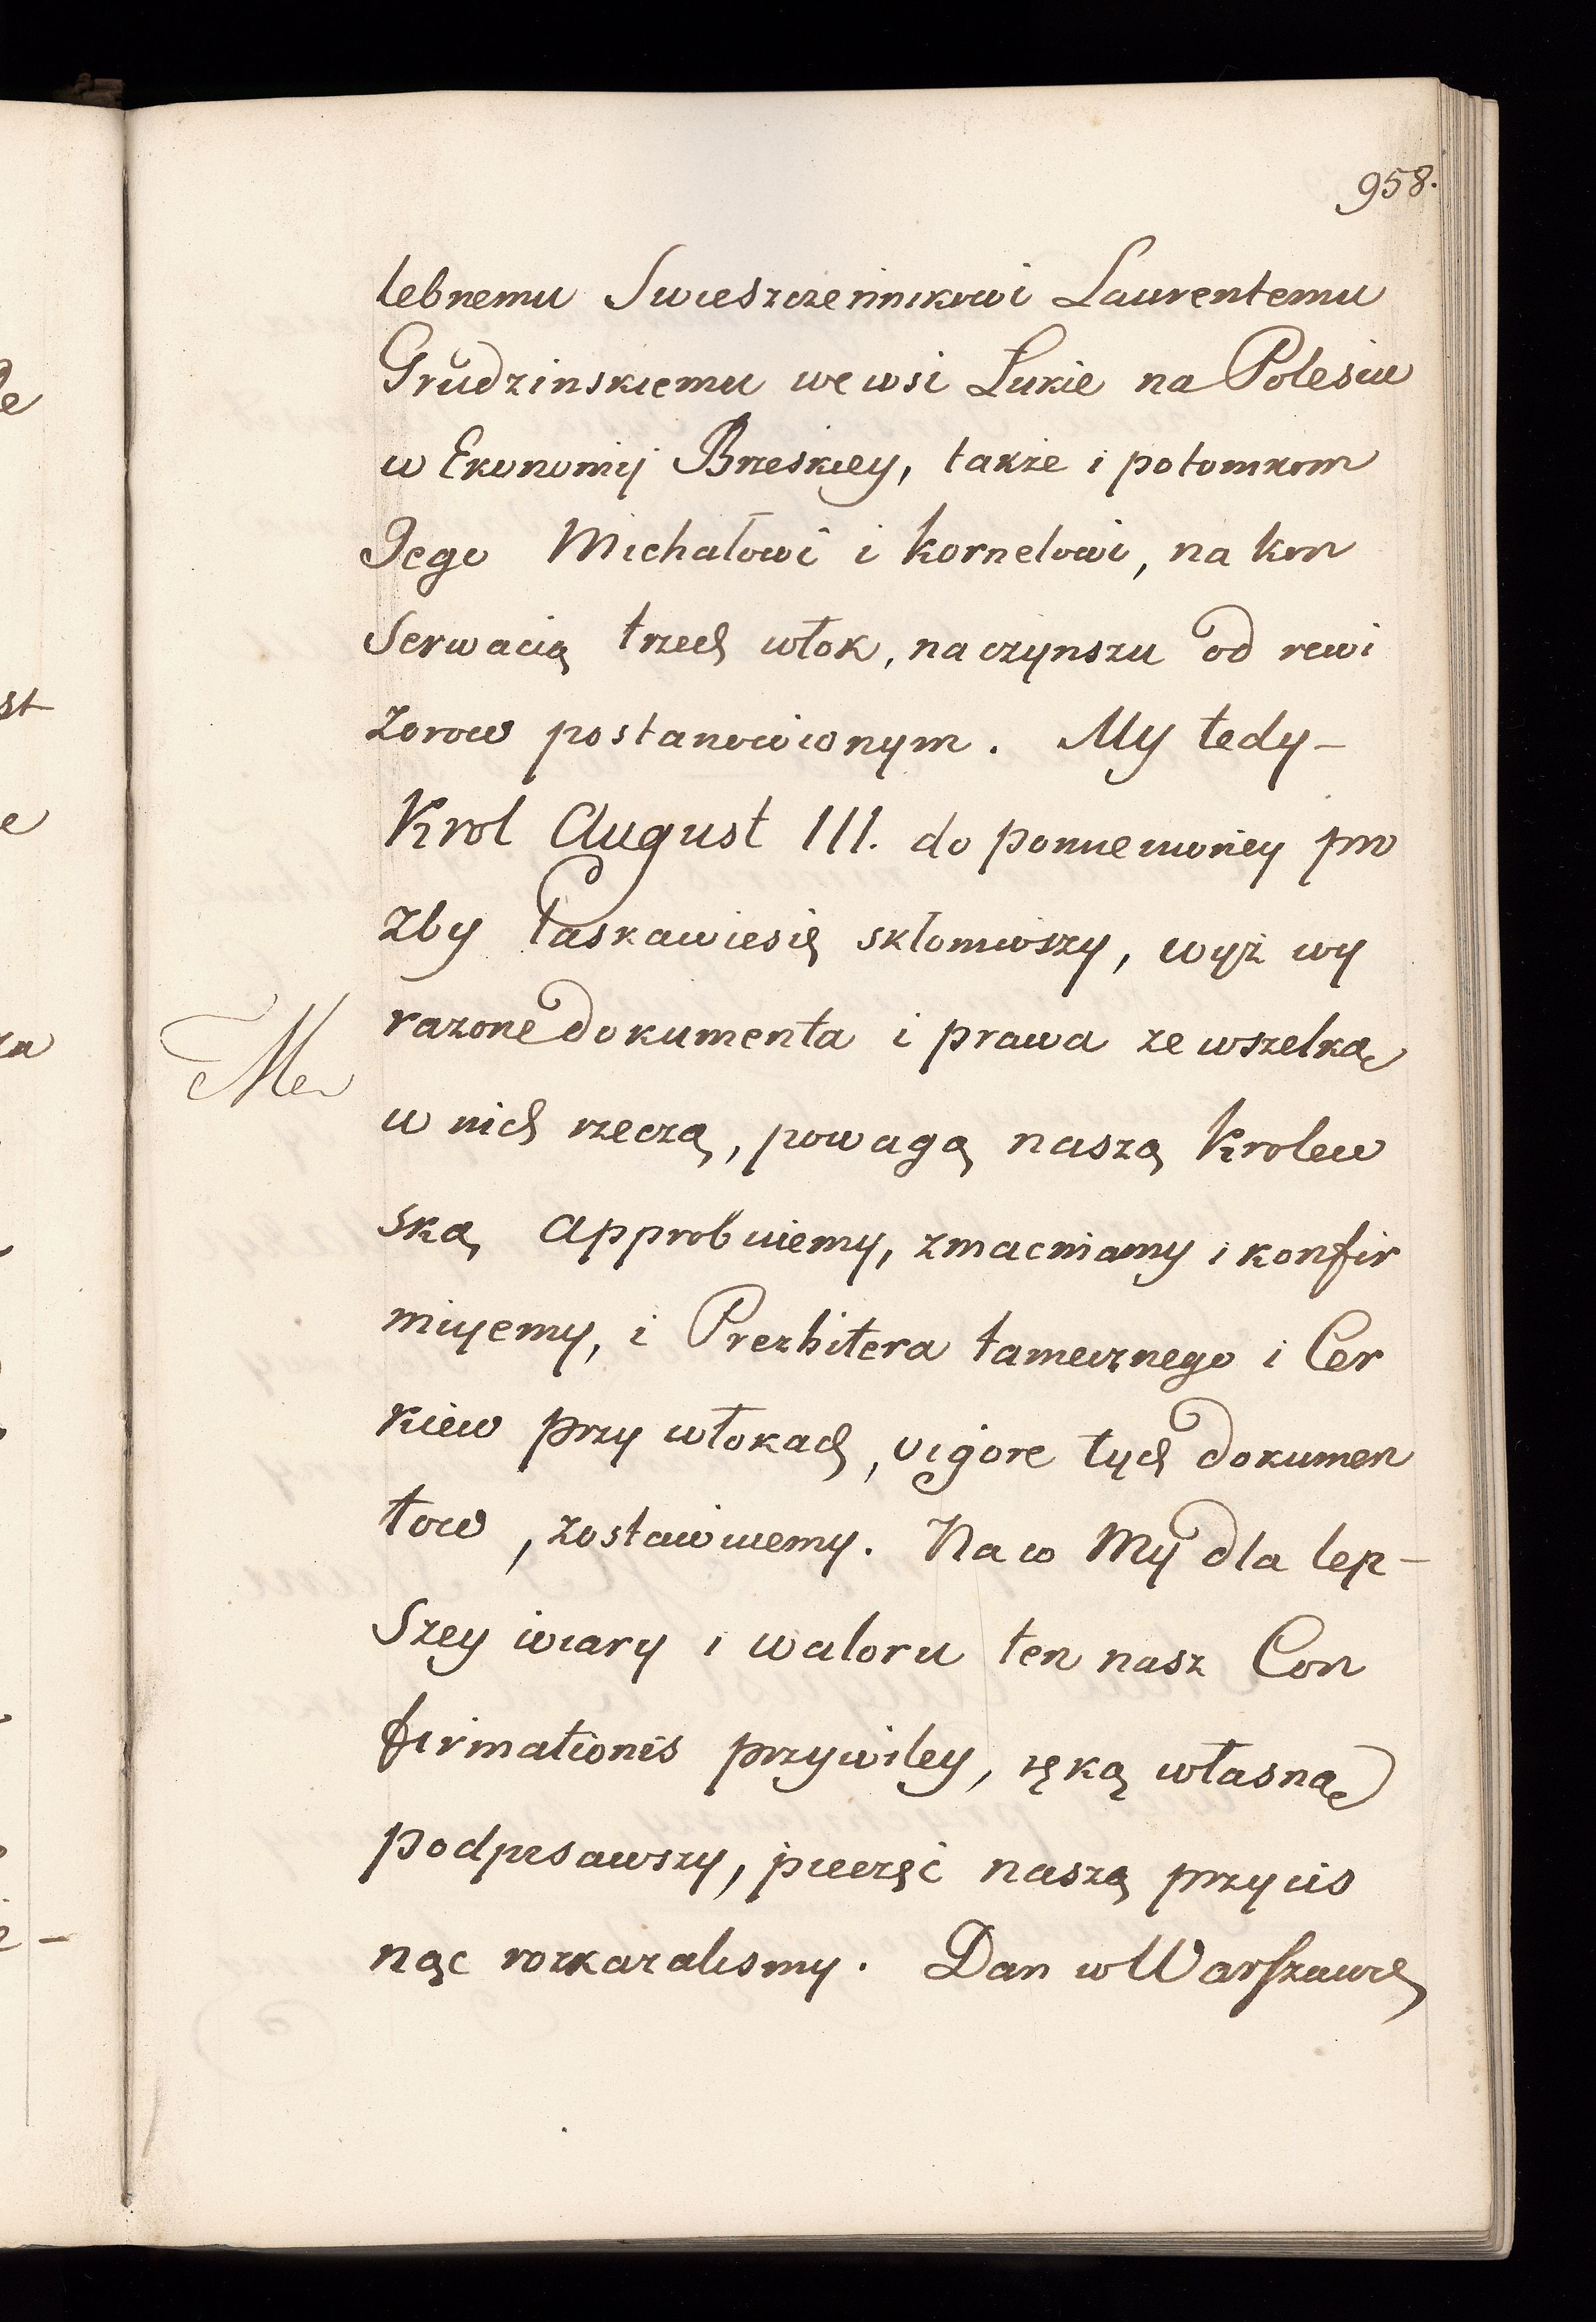 958.
lebnemu Swieszczennikowi Laurentemu
Grudzinskiemu we wsi Lukie na Polesiu
w Ekonomij Brzeskiey, takze i potomkom
Jego Michałowi i Kornelowi, na kon
serwacią trzech włok, na czynszu od rewi
zorow postanowionym. My tedy-
Krol August III. do pomienioney pro
zby łaskawie się skłoniwszy, wyż wy
razone dokumenta i prawa ze wszelką
w nich rzeczą, powagą naszą Krolew
ską approbuiemy, zmacniamy i konfir
miyemy, i Prezbitera tamecznego i Cer
kiew przy włokach, vigore tych dokumen
tow, zostawuiemy. Na co My dla lep-
szey wiary i waloru ten nasz Con
firmationis przywiley, ręką własną
podpisawszy, pieczęć naszą przycis
nąc rozkazalismy. Dan w Warszawie